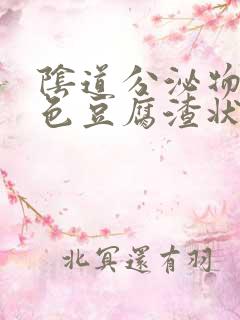 陰道分泌物
色豆腐渣狀
北冥還有羽